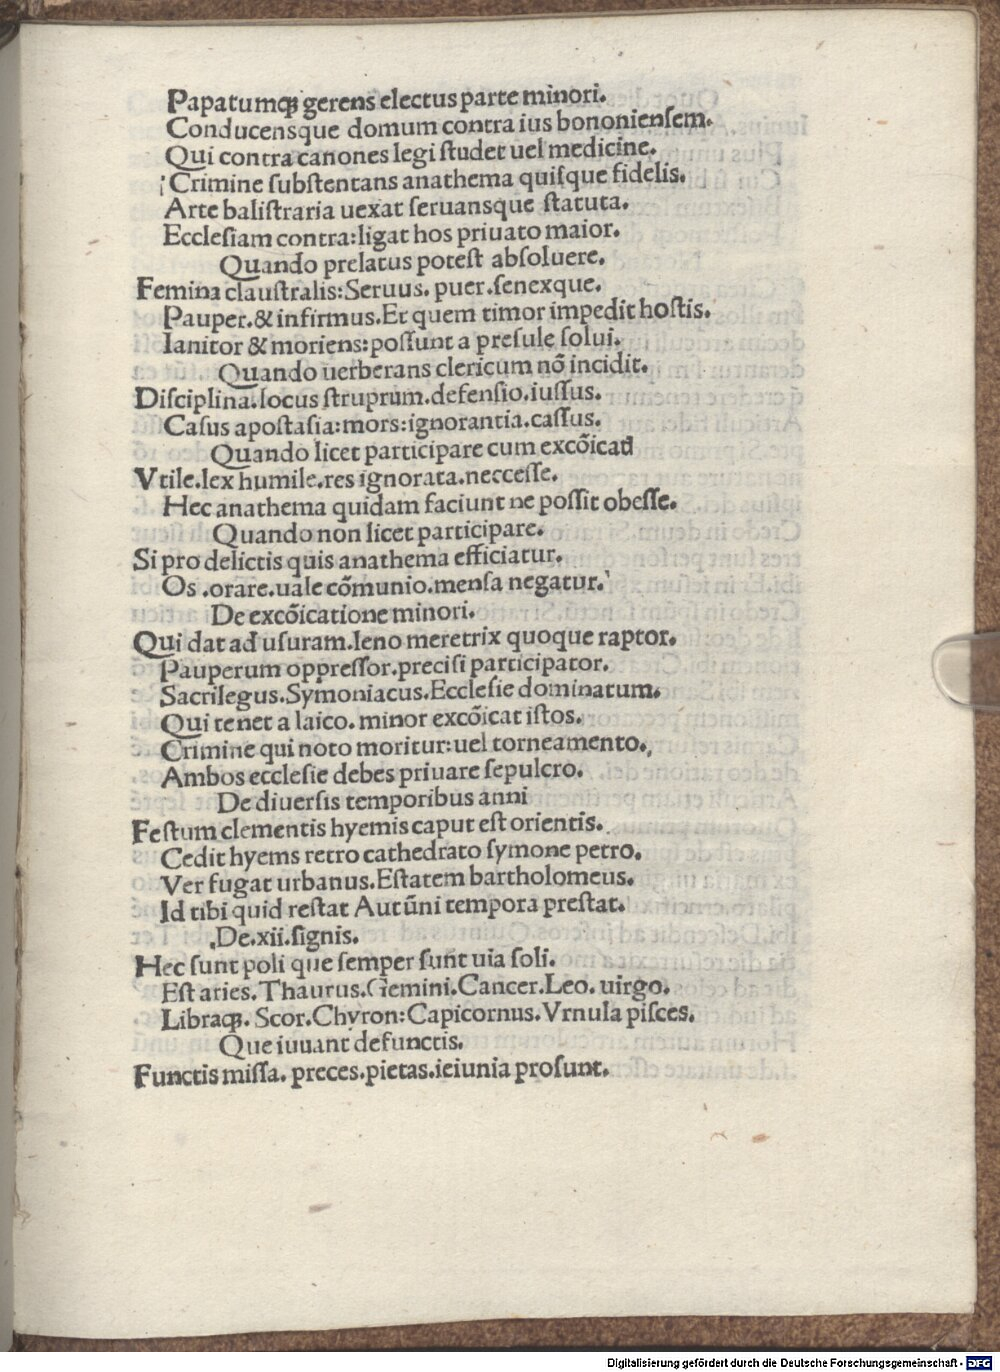 Papatumqꝫ gerens electus parte minori.
Conducensque domum contra ius bononiensem.
Qui contra canones legi studet uel medicine.
Crimine substentans anathema quisque fidelis.
Arte balistraria uexat seruansque statuta.
Ecclesiam contra:ligat hos priuato maior.
Quando prelatus potest absoluere.
Femina claustralis:Seruus. puer.senexque.
Pauper.& infirmus.Et quem timor impedit hostis.
Ianitor & moriens:possunt a presule solui.
Quando uerberans clericum nō incidit.
Disciplina.locus struprum.defensio.iussus.
Casus apostasia:mors:ignorantia.cassus.
Quando licet participare cum excōicad
Vtile.lex humile.res ignorata.neccesse.
Hec anathema quidam faciunt ne possit obesse.
Quando non licet participare.
Si pro delictis quis anathema efficiatur.
Os .orare.uale cōmunio.mensa negatur.
De excōicatione minori.
Qui dat ad usuram.leno meretrix quoque raptor.
Pauperum oppressor.precisi participator.
Sacrilegus.Symoniacus.Ecclesie dominatum.
Qui tenet a laico. minor excōicat istos.
Crimine qui noto moritur:uel torneamento.
Ambos ecclesie debes priuare sepulcro.
De diuersis temporibus anni
Festum clementis hyemis caput est orientis.
Cedit hyems retro cathedrato symone petro.
Ver fugat urbanus.Estatem bartholomeus.
Id tibi quid restat Autūni tempora prestat.
De.xii.signis.
Hec sunt poli que semper sunt uia soli.
Est aries.Thaurus.Gemini.Cancer.Leo. uirgo.
Libraqꝫ. Scor.Chyron:Capicornus.Vrnula pisces.
Que iuuant defunctis.
Functis missa. preces.pietas.ieiunia prosunt.
Digitalisierung gefördert durch die Deutsche Forschungsgemeinschaft - DFG